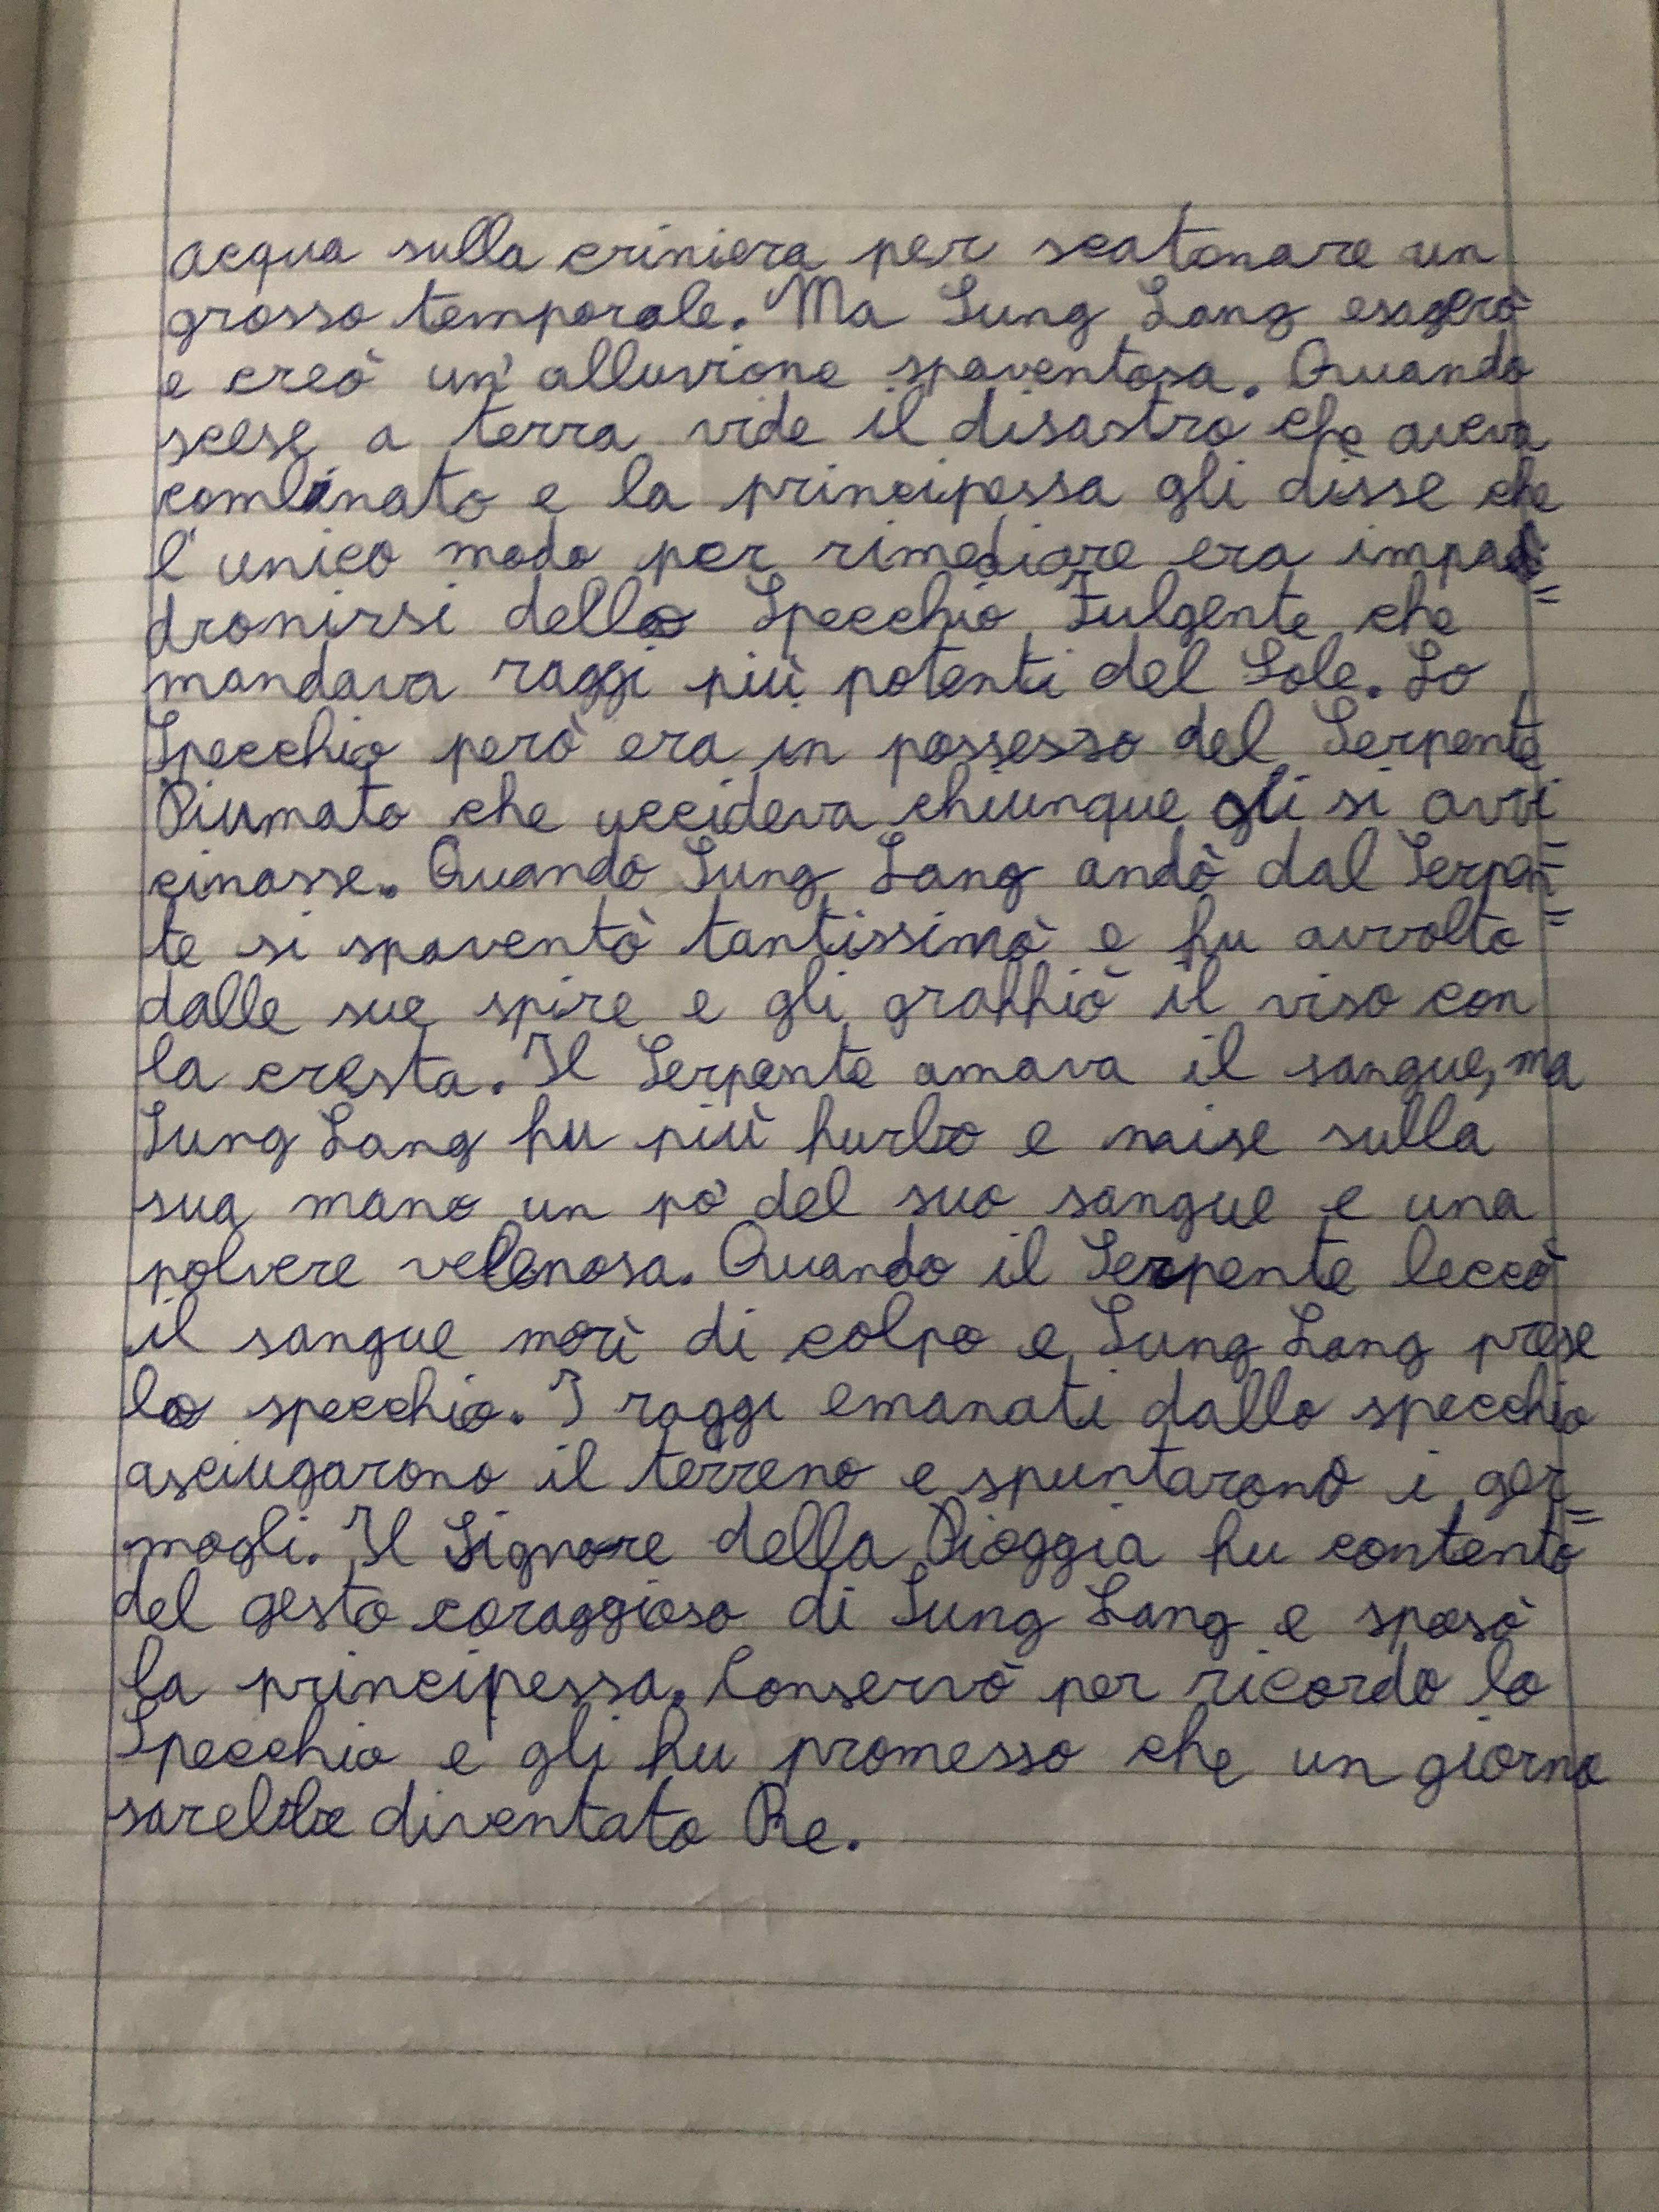 acqua sulla criniera per scatonare un
grosso temporale. Ma Sung Lang esagerò
e creò un'alluvione spaventosa. Quando
scese a terra vide il disastro che aveva
combinato e la principessa gli disse che
l'unico modo per rimediare era impa=
dronirsi dello Specchio Fulgente che
mandava raggi più potenti del Sole. Lo
Specchio però era in possesso del Serpente
Piumato che uccideva chiunque gli si avvi=
cinasse. Quando Sung Lang andò dal Serpen=
te si spaventò tantissimò e fu avvolto
dalle sue spire e gli graffiò il viso con
la cresta. Il Serpente amava il sangue, ma
Sung Lang fu più furbo e mise sulla
sua mano un pò del suo sangue e una
polvere velenosa. Quando il Serpente leccò
il sangue morì di colpo e Sung Lang prese
lo specchio. I raggi emanati dallo specchio
asciugarono il terreno e spuntarono i ger=
mogli. Il Signore della Pioggia fu contento
del gesto coraggioso di Sung Lang e sposò
la principessa. Conservò per ricordo lo
Specchio e gli fu promesso che un giorno
sarebbe diventato Re.